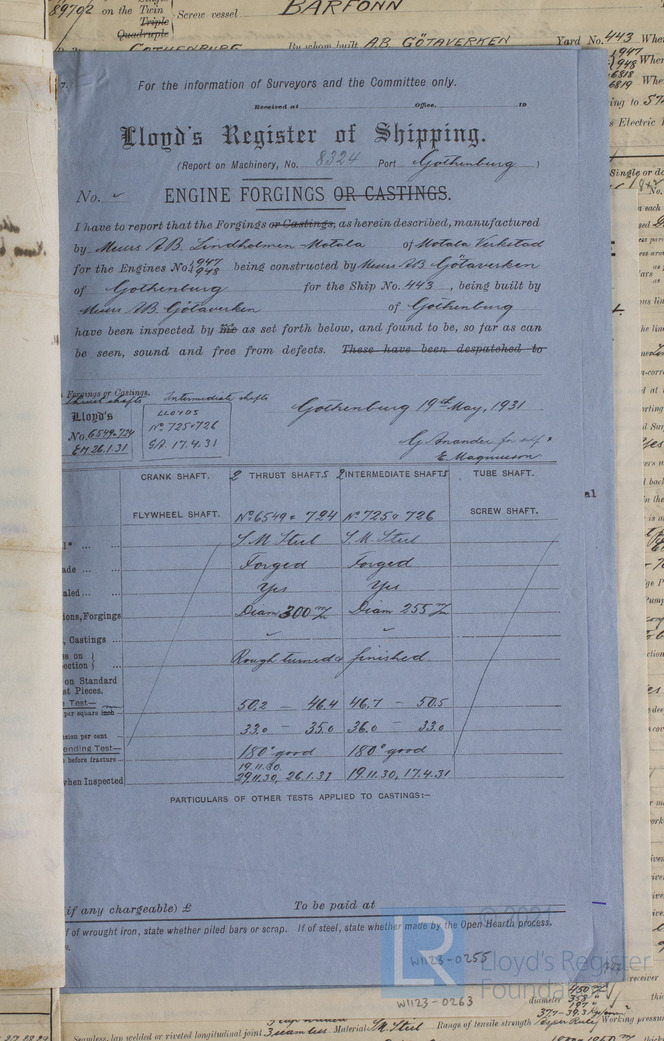 89792 on the Twin Triple Quadruple Screw vessel BARFONN
GOTHENBURG By whom built A.B. GÖTAVERKEN Yard No. 443 Whe
1947
1948
6818
6819
For the information of Surveyors and the Committee only.
Received at Office, 19
Lloyd's Register of Shipping.
(Report on Machinery, No. 8324 Port Gothenburg )
No. ENGINE FORGINGS OR CASTINGS.
I have to report that the Forgings or Castings, as herein described, manufactured
by Messrs A.B. Lindholmen Motala of Motala Verkstad
for the Engines No. 1947 1948 being constructed by Messrs AB Götaverken
of Gothenburg for the Ship No. 443 , being built by
Messrs AB Götaverken of Gothenburg
have been inspected by me as set forth below, and found to be, so far as can
be seen, sound and free from defects. These have been despatched to
Forgings or Castings.
Thrust shafts Intermediate shafts
Lloyd's
No. 6549 & 724
EM 26.1.31
LLOYDS
No 725 & 726
GA. 17.4.31
Gothenburg 19th May, 1931
G. Anander for self &
E. Magnuson
CRANK SHAFT. 2 THRUST SHAFTS 2 INTERMEDIATE SHAFTS TUBE SHAFT.
FLYWHEEL SHAFT. No 6549 & 724 No 725 & 726 SCREW SHAFT.
S.M. Steel S.M. Steel
ade ... Forged Forged
aled ... Yes Yes
ions, Forgings Diam 300 m/m Diam 255 m/m
, Castings ...
s on
ection Rough turned & finished
on Standard
st Pieces.
e Test—
per square inch 50,2 – 46.4 46.7 – 50.5
nsion per cent 33.0 – 35.0 36.0 – 33.0
ending Test—
before fracture 180° good 180° good
19.11.30
when Inspected 29.11.30, 26.1.31 19.11.30, 17.4.31
PARTICULARS OF OTHER TESTS APPLIED TO CASTINGS:—
if any chargeable) £ To be paid at
If of wrought iron, state whether piled bars or scrap. If of steel, state whether made by the Open Hearth process.
© 2021
LR
Lloyd's Register
Foundation
W1123-0255
W1123-0263
diameter
Seamless, lap welded or riveted longitudinal joint Seamless Material S.M. Steel Range of tensile strength Working pressu